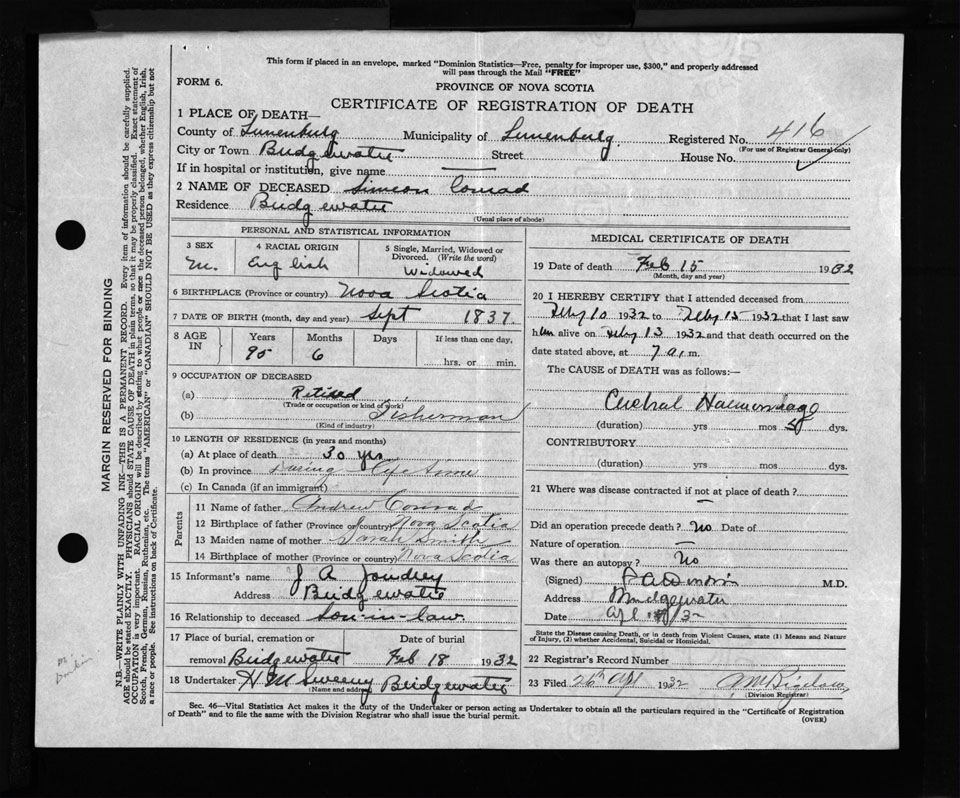 This form if placed in an envelope, marked "Dominion Statistics—Free, penalty for improper use, $300," and properly addressed
will pass through the Mail "FREE"
FORM 6.
PROVINCE OF NOVA SCOTIA
CERTIFICATE OF REGISTRATION OF DEATH
1 PLACE OF DEATH—
County of Lunenburg Municipality of Lunenburg. Registered No. 416
(For use of Registrar General only)
City or Town Bridgewater Street House No.
If in hospital or institution, give name —
2 NAME OF DECEASED Simeon Conrad
Residence Bridgewater
(Usual place of abode)
PERSONAL AND STATISTICAL INFORMATION
3 SEX 4 RACIAL ORIGIN 5 Single, Married, Widowed or
Divorced. (Write the word)
M. English Widowed
6 BIRTHPLACE (Province or country) Nova Scotia
7 DATE OF BIRTH (month, day and year) Sept 1837.
8 AGE IN Years Months Days If less than one day,
95 6 hrs. or min.
9 OCCUPATION OF DECEASED
(a) Retired
(Trade or occupation or kind of work)
(b) Fisherman
(Kind of industry)
10 LENGTH OF RESIDENCE (in years and months)
(a) At place of death 30 yrs
(b) In province During life time
(c) In Canada (if an immigrant)
Parents
11 Name of father Andrew Conrad
12 Birthplace of father (Province or country) Nova Scotia
13 Maiden name of mother Sarah Smith
14 Birthplace of mother (Province or country) Nova Scotia
15 Informant's name J A Joudrey
Address Bridgewater
16 Relationship to deceased Son-in-law.
17 Place of burial, cremation or Date of burial
removal Bridgewater Feb 18 1932
18 Undertaker H M Sweeny Bridgewater
(Name and address)
MEDICAL CERTIFICATE OF DEATH
19 Date of death Feb 15 1932
(Month, day and year)
20 I HEREBY CERTIFY that I attended deceased from
Feby 10 1932 to Feby 15 1932 that I last saw
him alive on Feby 13 1932 and that death occurred on the
date stated above, at 7 a. m.
The CAUSE of DEATH was as follows:—
Cerebral Haemorrhage
(duration) yrs mos 5 dys.
CONTRIBUTORY
(duration) yrs mos dys.
21 Where was disease contracted if not at place of death?
Did an operation precede death? No Date of
Nature of operation —
Was there an autopsy? No
(Signed) M.D.
Address Bridgewater
Date Apl
State the Disease causing Death, or in death from Violent Causes, state (1) Means and Nature
of Injury, (2) whether Accidental, Suicidal or Homicidal.
22 Registrar's Record Number
23 Filed 26th Apl 1932
(Division Registrar)
Sec. 46—Vital Statistics Act makes it the duty of the Undertaker or person acting as Undertaker to obtain all the particulars required in the "Certificate of Registration
of Death" and to file the same with the Division Registrar who shall issue the burial permit.
(OVER)
MARGIN RESERVED FOR BINDING
N.B.—WRITE PLAINLY WITH UNFADING INK—THIS IS A PERMANENT RECORD. Every item of information should be carefully supplied.
AGE should be stated EXACTLY. PHYSICIANS should STATE CAUSE OF DEATH in plain terms, so that it may be properly classified. Exact statement of
OCCUPATION is very important. RACIAL ORIGIN will be described by stating to what people or race the deceased person belonged, whether English, Irish,
Scotch, French, German, Russian, Ruthenian, etc. The terms "AMERICAN" or "CANADIAN" SHOULD NOT BE USED as they express citizenship but not
a race or people. See instructions on back of Certificate.